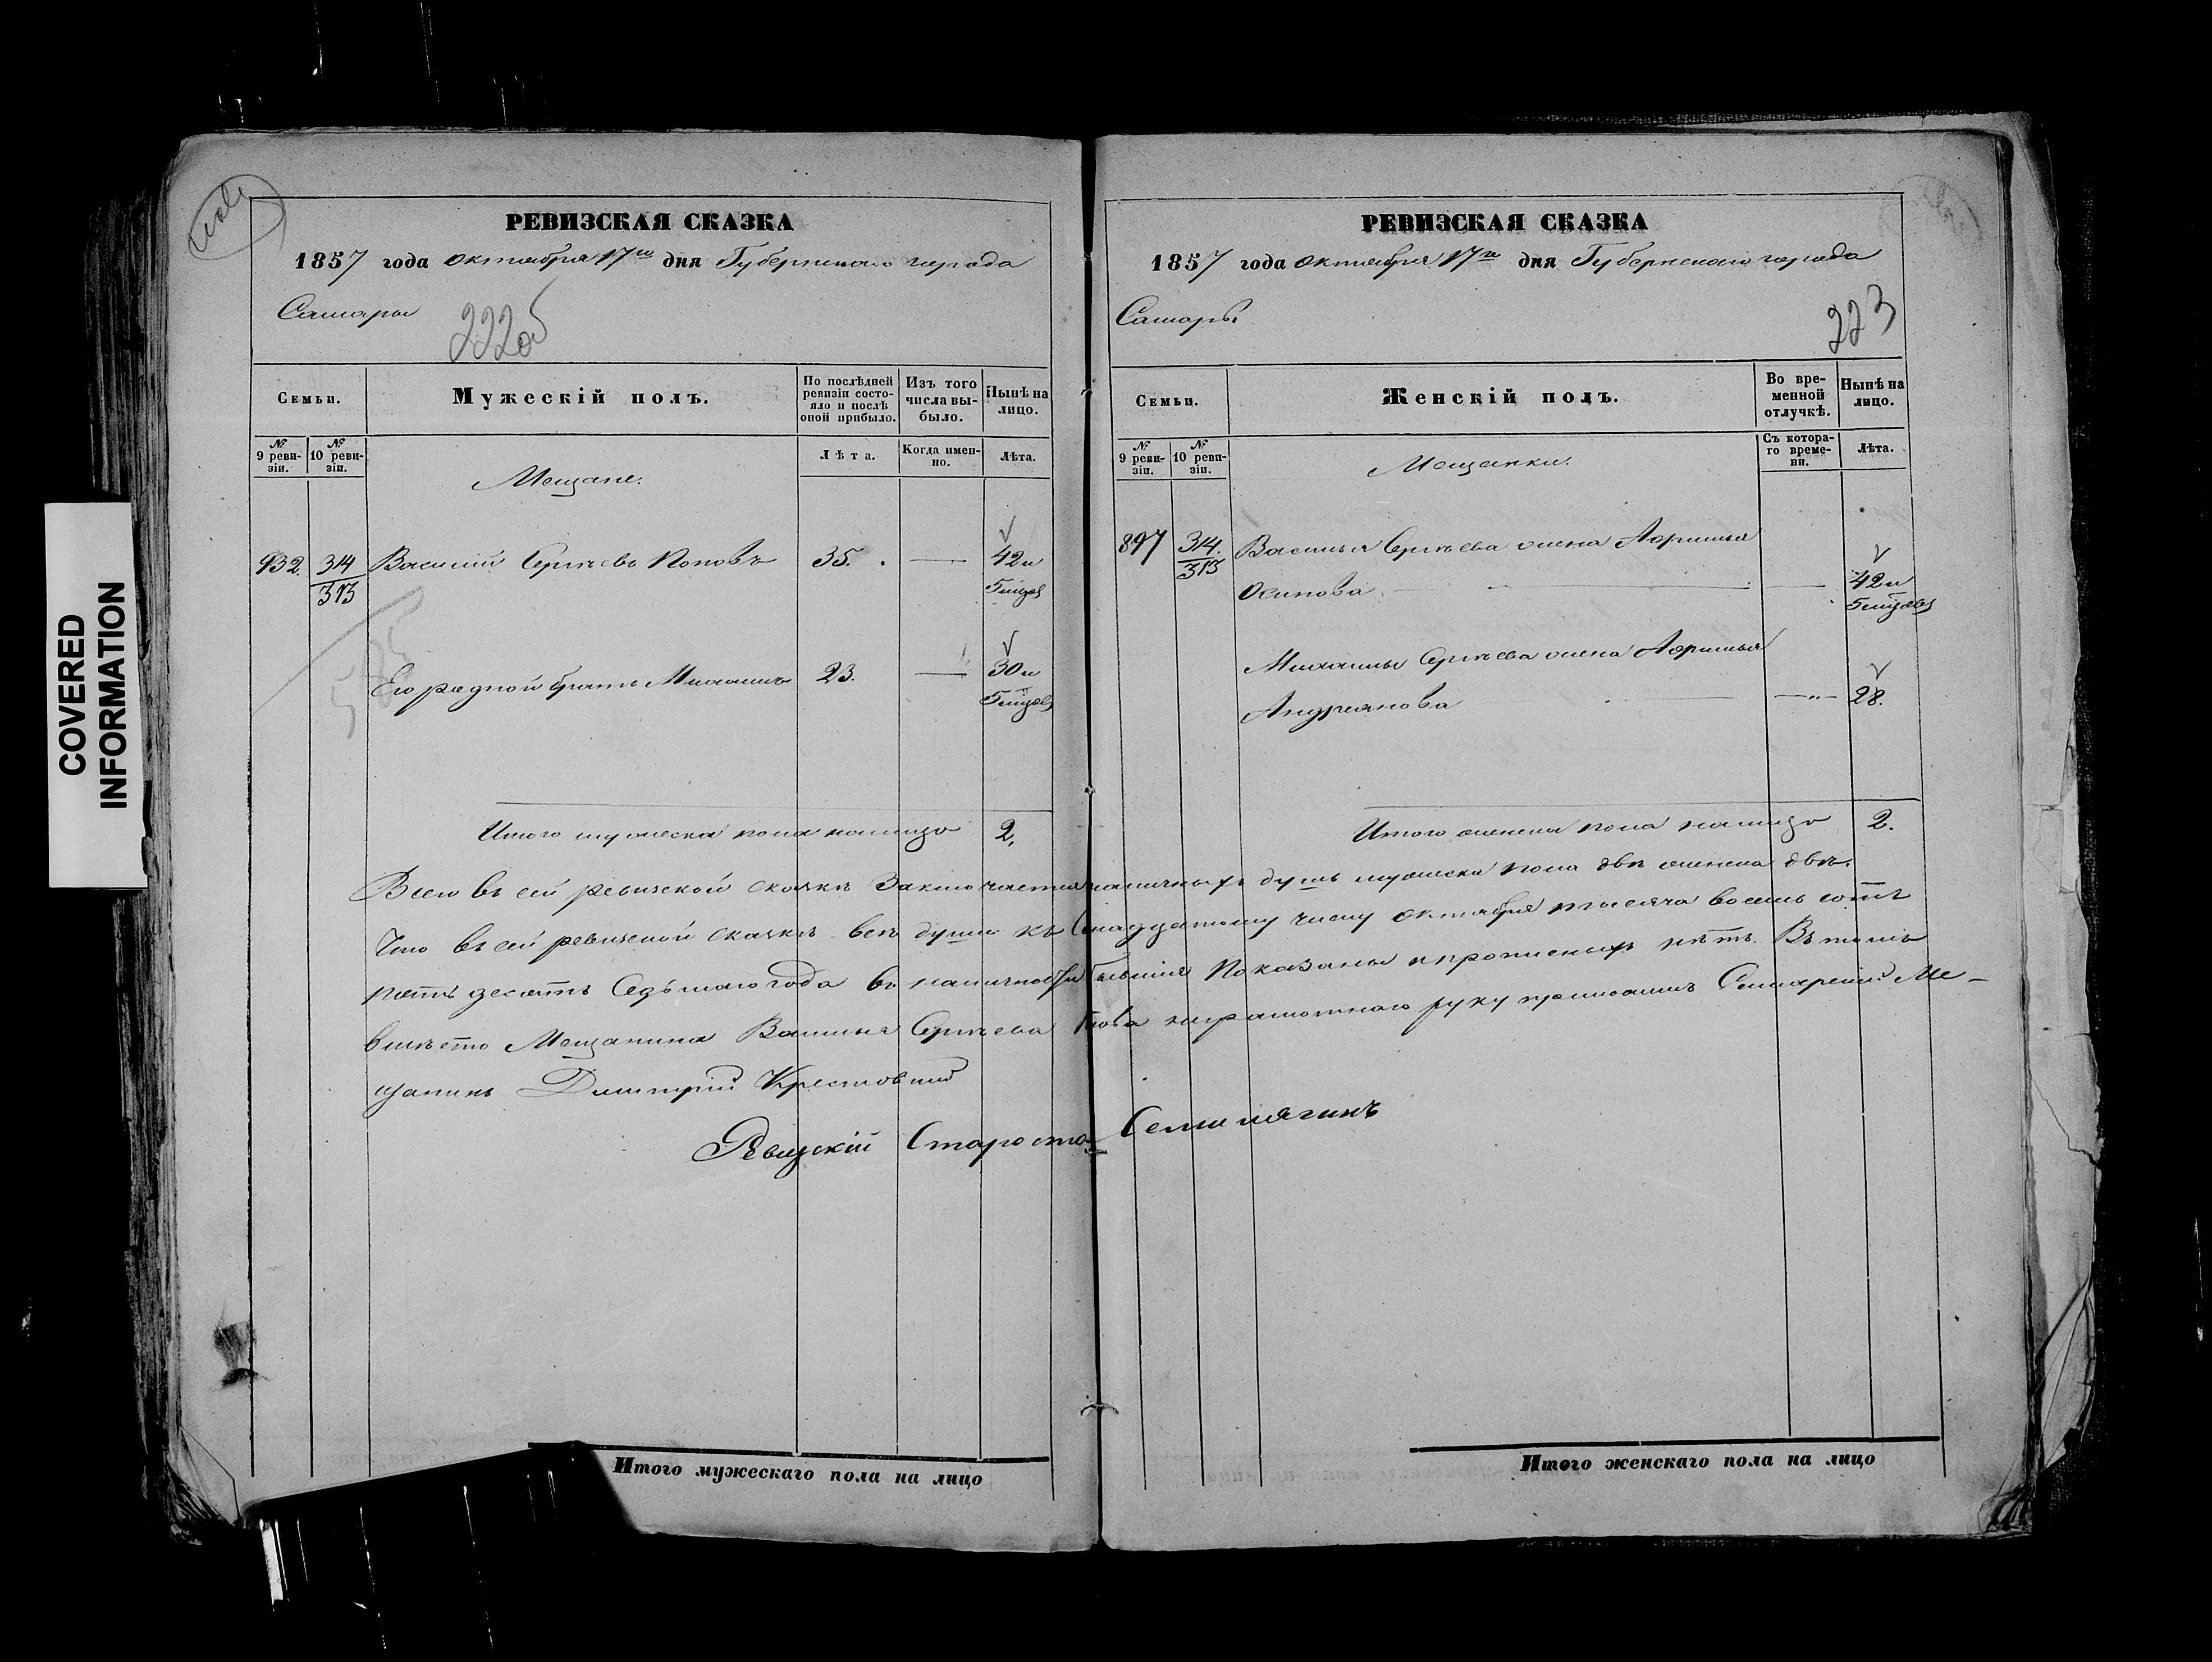 РЕВИЗСКАЯ СКАЗКА
1857 года октября 17го дня Губернскаго города
Самары
222об
Семьи.
Мужескій полъ.
По послѣдней ревизіи состояло и послѣ оной прибыло.
Изъ того числа выбыло.
Нынѣ на лицо.
№ 9 ревизіи.
№ 10 ревизіи.
Лѣта.
Когда именно.
Лѣта.
Мещане.
932. 314 Василій Сергѣевъ Поповъ 35. — 42 и
313 5 мѣсяц
Его родной братъ Михаилъ 23. — 30 и
5 мѣсяц
Итого мужеска пола налицо 2.
РЕВИЗСКАЯ СКАЗКА
1857 года октября 17го дня Губернскаго города
Самары
223
Семьи.
Женскій полъ.
Во временной отлучкѣ.
Нынѣ на лицо.
№ 9 ревизіи.
№ 10 ревизіи.
Съ котораго времени.
Лѣта.
Мещанки.
897 314. Василья Сергѣева жена Афимья
313 Осипова — 42 и
5 мѣсяцовъ
Михаилы Сергѣева жена Афимья
Андреянова — 28.
Итого женска пола налицо 2.
Всего въ сей ревизской сказкѣ заключается наличныхъ душъ мужеска пола двѣ женска двѣ.
Что въ сей ревизской сказкѣ всѣ души къ семнадцатому числу октября тысяча восемь сотъ
пятьдесятъ седьмаго года въ наличности бывшія показаны и прописныхъ нѣтъ. Въ томъ
вмѣсто Мещанина Василья Сергѣева Попова неграмотнаго руку приложилъ Самарскій Ме-
щанинъ Дмитрій Крестовскій
Ревизскій Староста Семилягинъ
Итого мужескаго пола на лицо
Итого женскаго пола на лицо
COVERED
INFORMATION